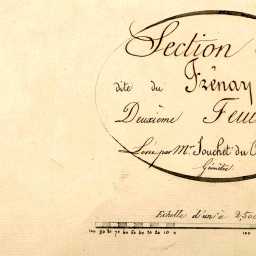 Section
dite du Frênay
Deuxième Feui
Levé par Mr. Souchet du
Géomètre
Echelle d'un à 2,500
100 90 80 70 60 50 40 30 20 10 0 100